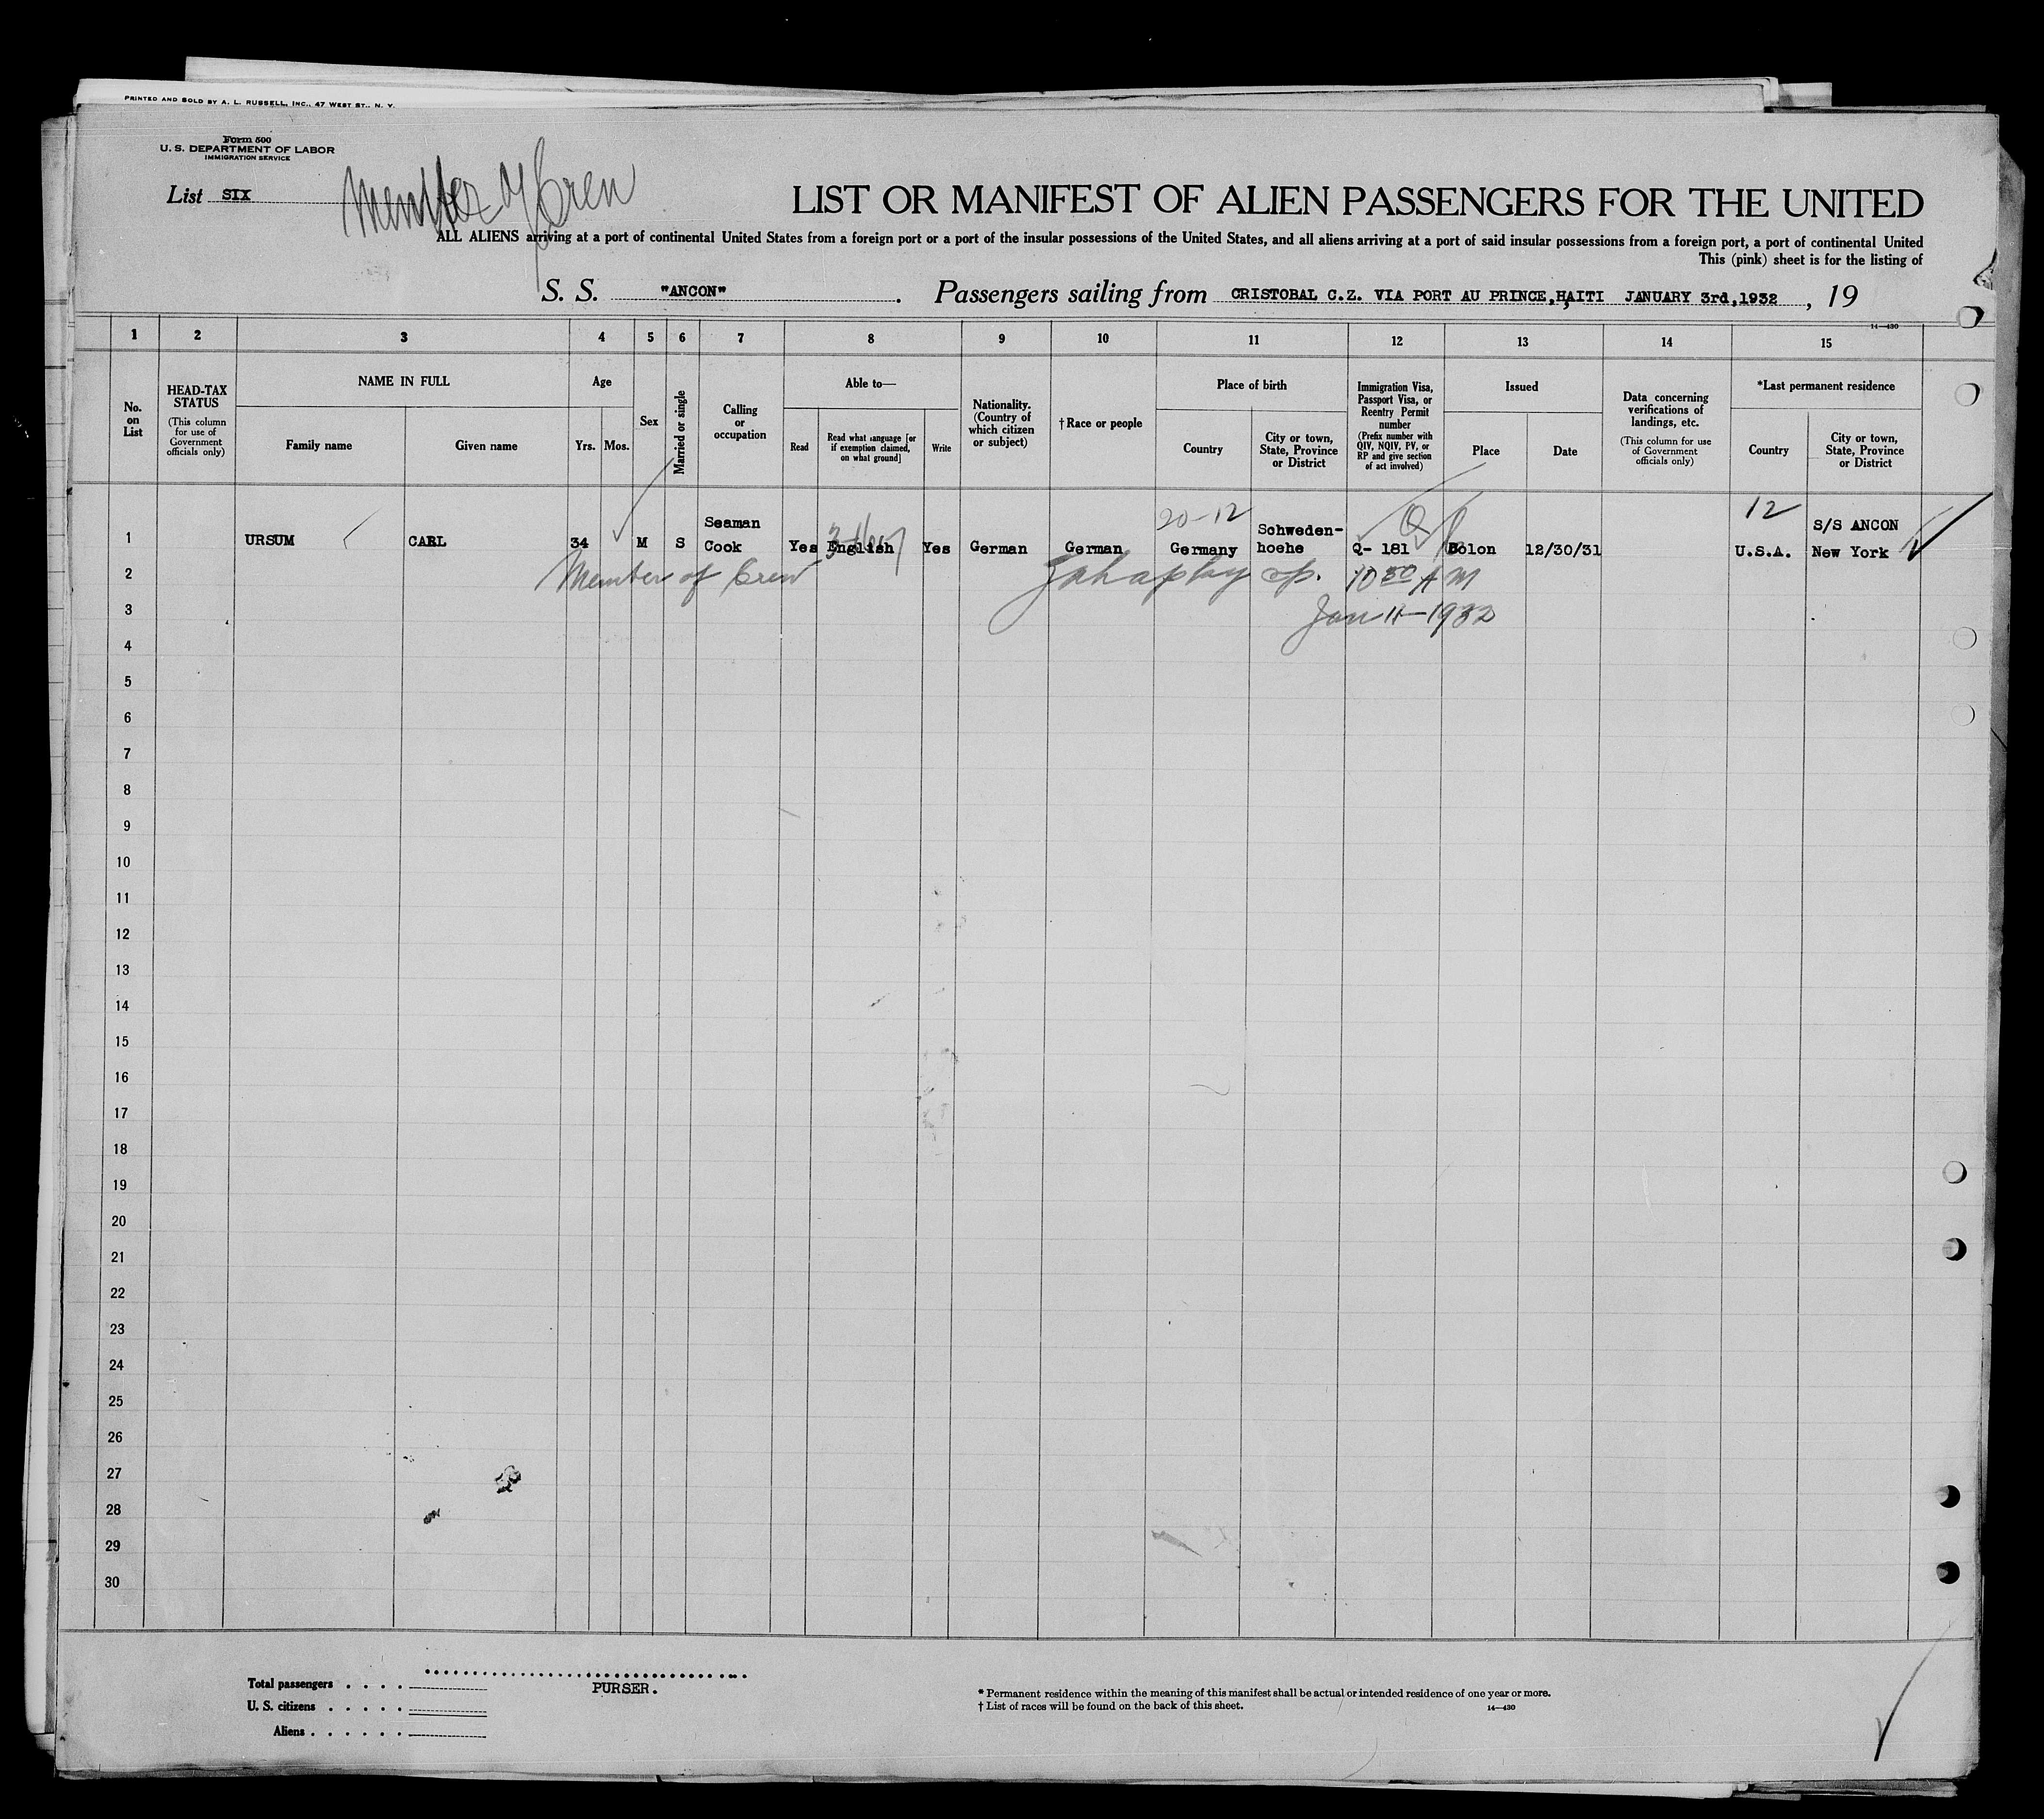 PRINTED AND SOLD BY A. L. RUSSELL, INC., 47 WEST ST., N. Y.
Form 500
U. S. DEPARTMENT OF LABOR
IMMIGRATION SERVICE
List SIX
Member of Crew
LIST OR MANIFEST OF ALIEN PASSENGERS FOR THE UNITED
ALL ALIENS arriving at a port of continental United States from a foreign port or a port of the insular possessions of the United States, and all aliens arriving at a port of said insular possessions from a foreign port, a port of continental United
This (pink) sheet is for the listing of
S. S. "ANCON" . Passengers sailing from CRISTOBAL C.Z. VIA PORT AU PRINCE, HAITI JANUARY 3rd, 1932 , 19
14—430
1 2 3 4 5 6 7 8 9 10 11 12 13 14 15
No. on List
HEAD-TAX STATUS
(This column for use of Government officials only)
NAME IN FULL
Family name
Given name
Age
Yrs.
Mos.
Sex
Married or single
Calling or occupation
Able to—
Read
Read what language [or if exemption claimed, on what ground]
Write
Nationality. (Country of which citizen or subject)
† Race or people
Place of birth
Country
City or town, State, Province or District
Immigration Visa, Passport Visa, or Reentry Permit number
(Prefix number with QIV, NQIV, PV, or RP and give section of act involved)
Issued
Place
Date
Data concerning verifications of landings, etc.
(This column for use of Government officials only)
*Last permanent residence
Country
City or town, State, Province or District
20-12
12
1 URSUM CARL 34 M S Seaman Cook Yes English Yes German German Germany Schweden-hoehe Q- 181 Colon 12/30/31 U.S.A. S/S ANCON New York
2 Member of Crew 10 30 A M
3 Jan 11-1932
4
5
6
7
8
9
10
11
12
13
14
15
16
17
18
19
20
21
22
23
24
25
26
27
28
29
30
Total passengers . . . .
U. S. citizens . . . . .
Aliens . . . . . .
PURSER.
* Permanent residence within the meaning of this manifest shall be actual or intended residence of one year or more.
† List of races will be found on the back of this sheet.
14—430